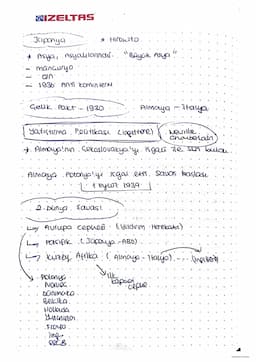 İZELTAŞ
Japonya * Hirohito
* Asya, Asyalılarındır. "Büyük Asya"
- mançurya
- çin
- 1936 Anti komintern
Çelik Pakt - 1939 Almanya - İtalya
Yatıştırma Politikası (İngiltere) Neville Chamberlain
* Almanya'nın Çekoslovakya'yı işgali ile son buldu
Almanya Polonya'yı işgal etti. Savaş başladı
1 Eylül 1939
2. Dünya Savaşı
Avrupa Cephesi (Yıldırım Harekatı)
Pasifik (Japonya - ABD)
Kuzey Afrika (Almanya - İtalya) ... (İngiltere)
Polonya
Norveç
Danimarka
Belçika
Hollanda
ilk
cephe